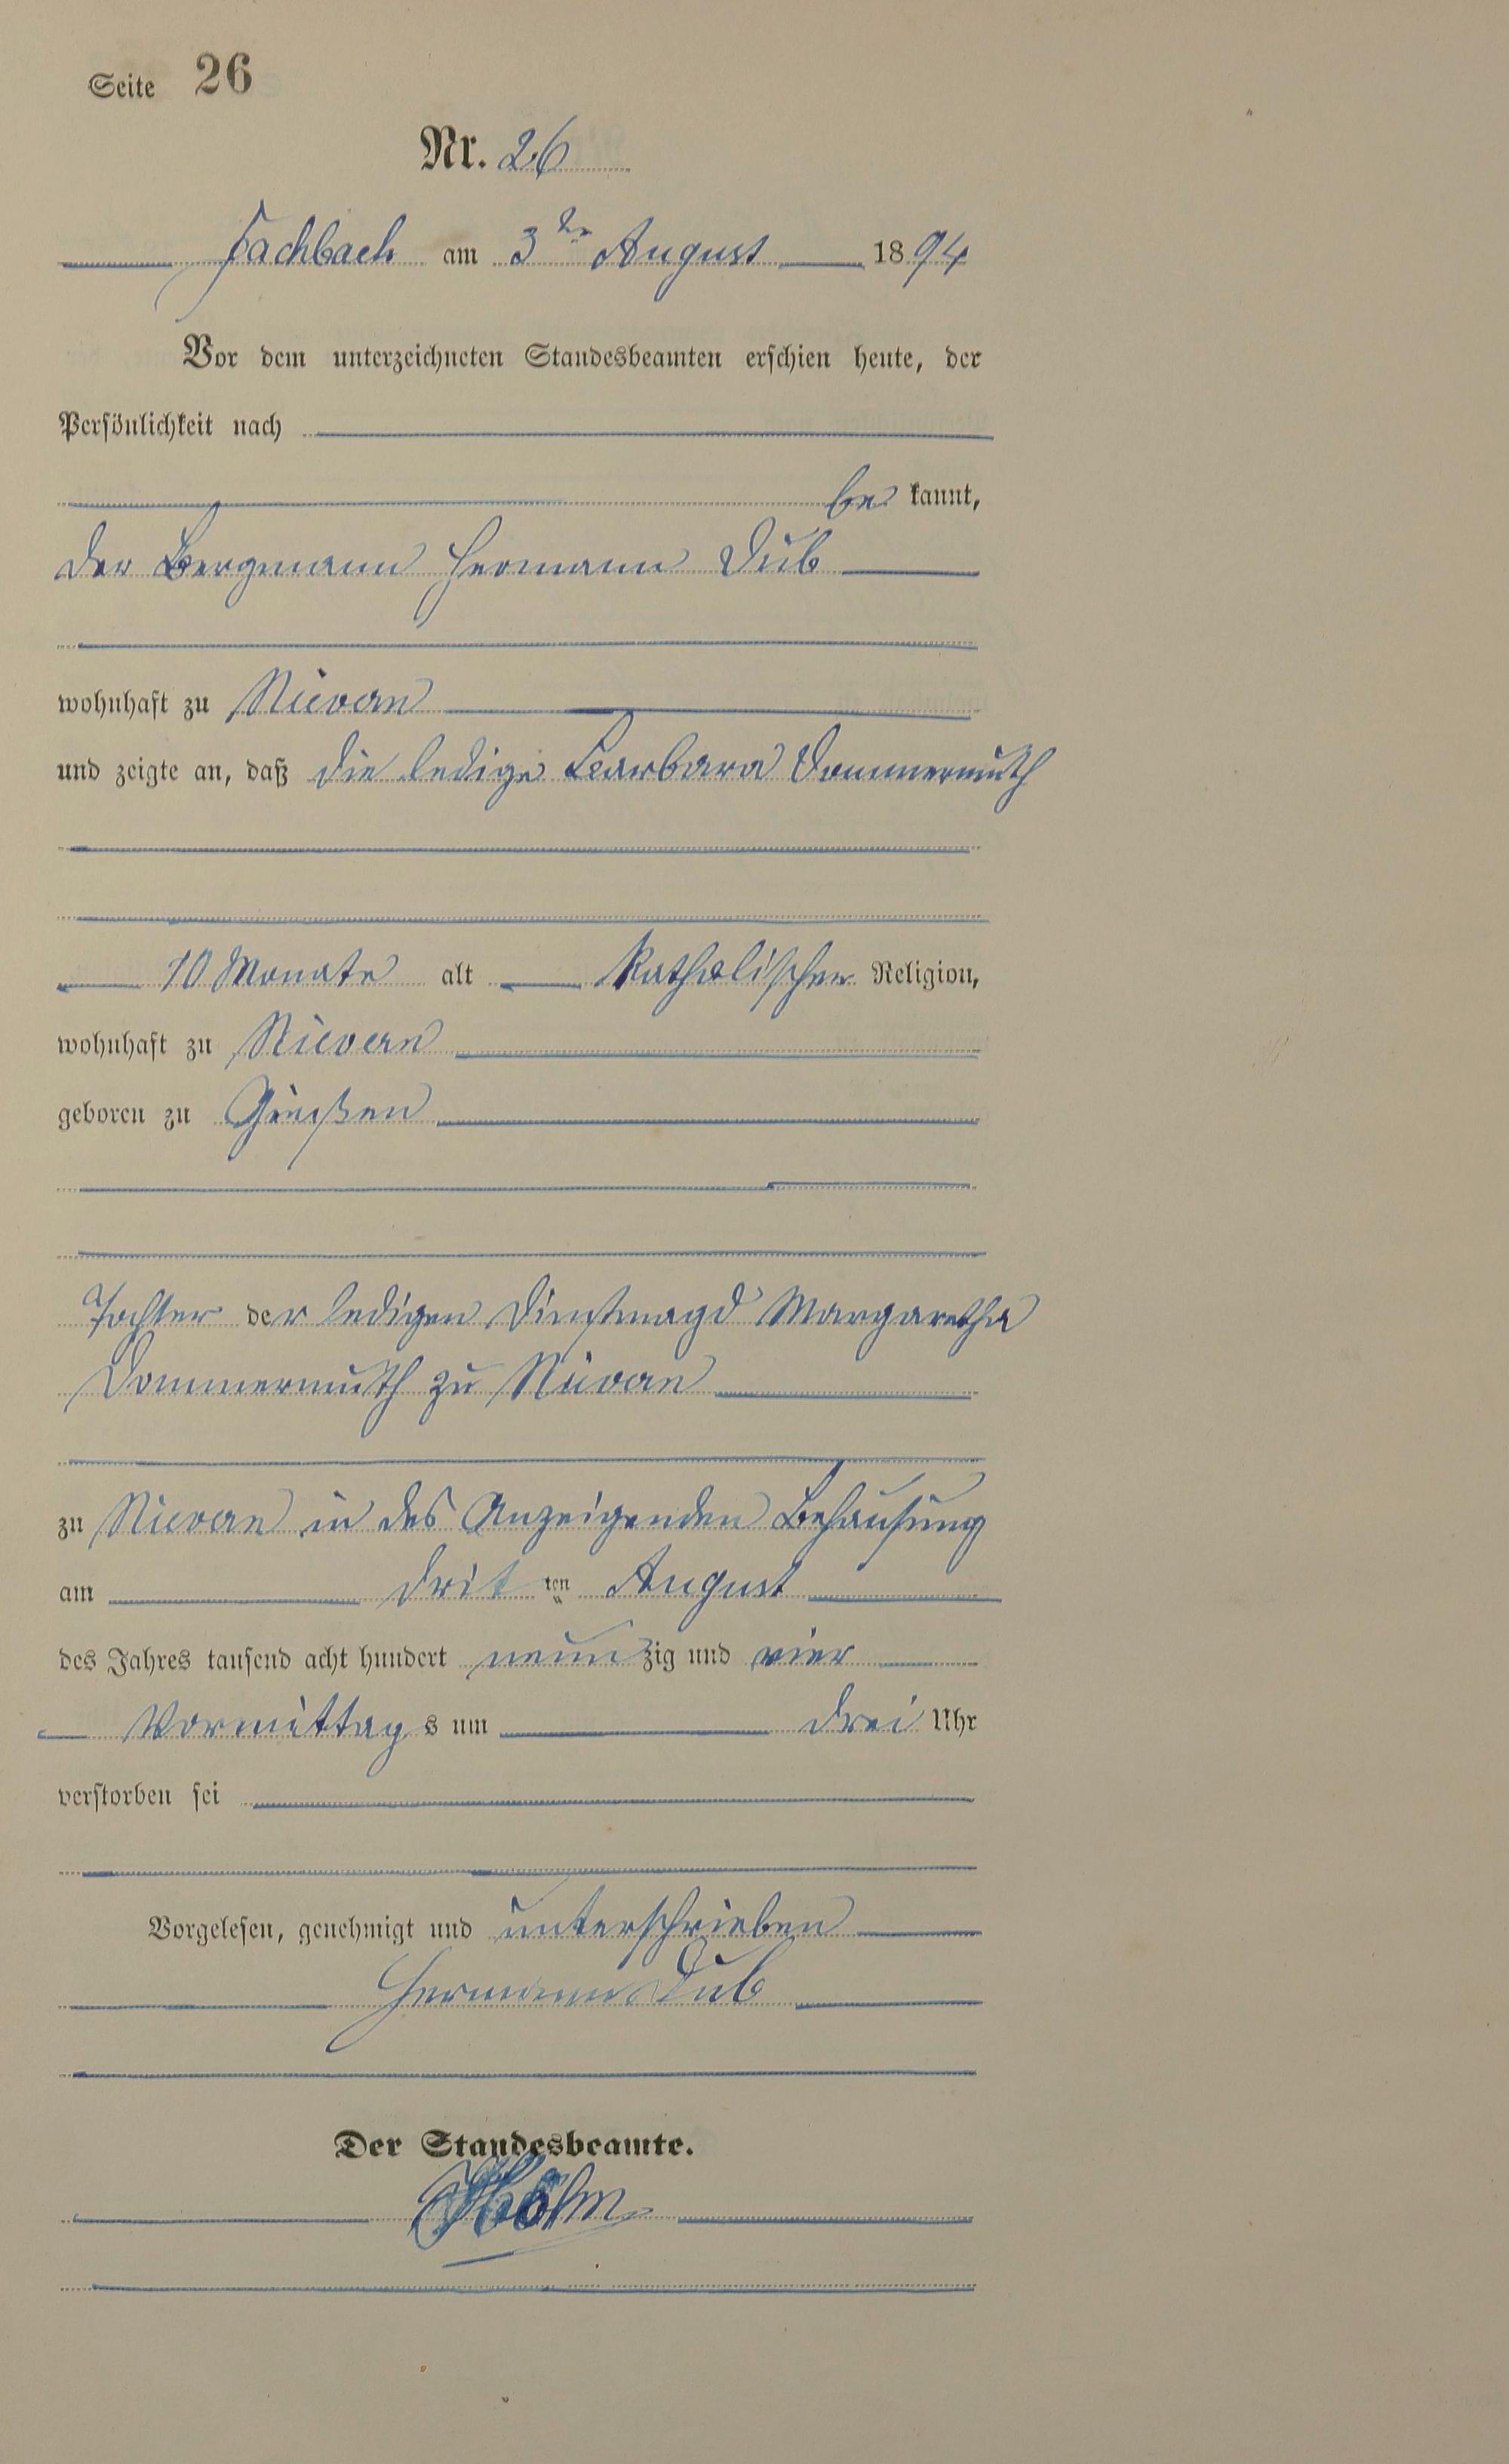 Seite 26
Nr. 26
Fachbach am 3ten August 1894
Vor dem unterzeichneten Standesbeamten erschien heute, der
Persönlichkeit nach
be kannt,
der Bergmann Hermann Dub
wohnhaft zu Nievern
und zeigte an, daß die ledige Barbara Dommermuth
10 Monate alt katholischer Religion,
wohnhaft zu Nievern
geboren zu Gießen
Tochter der ledigen Dienstmagd Margaretha
Dommermuth zu Nievern
zu Nievern in des Anzeigenden Behausung
am drit ten August
des Jahres tausend acht hundert neun zig und vier
Vormittag s um drei Uhr
verstorben sei
Vorgelesen, genehmigt und unterschrieben
Hermann Dub
Der Standesbeamte.